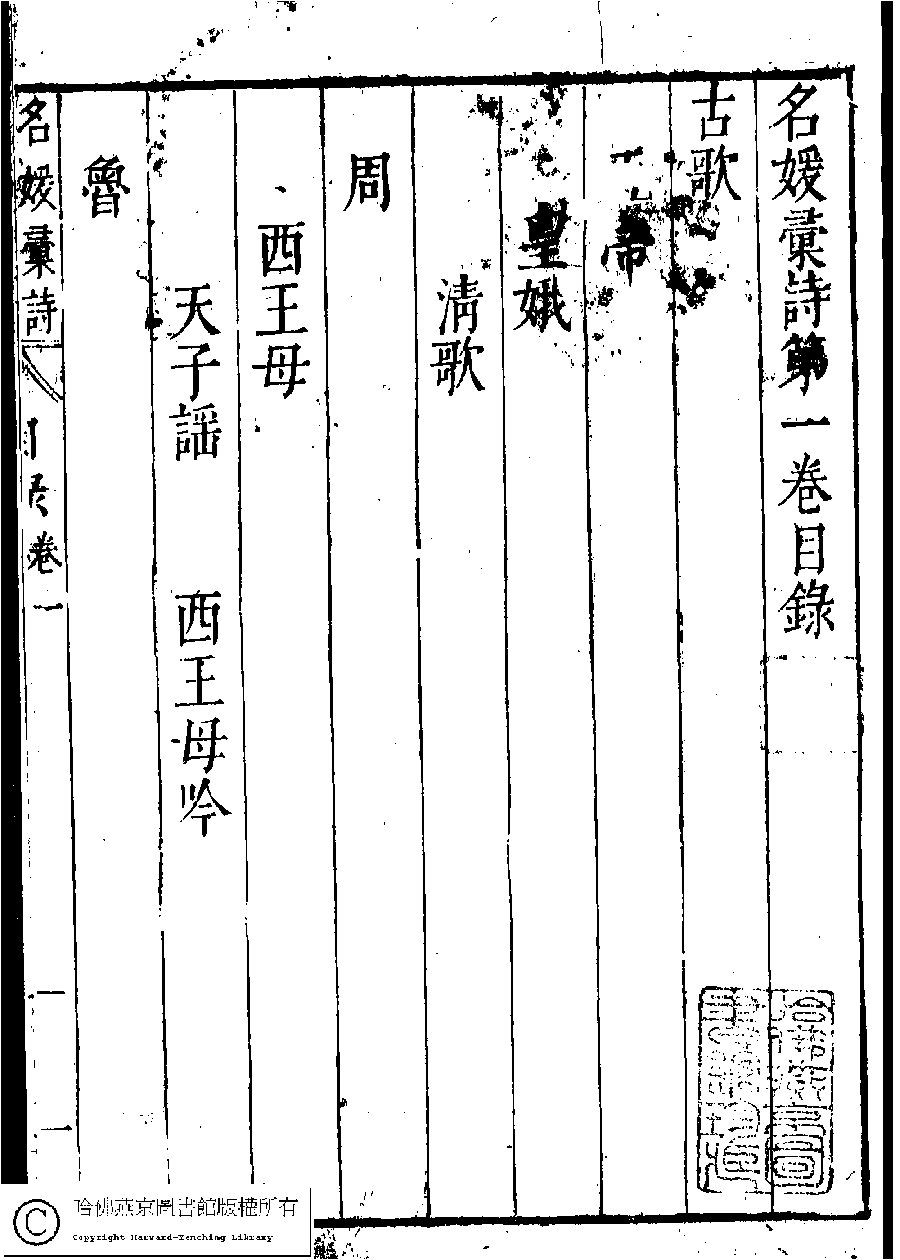 名媛彙詩第一卷目錄
古歌
帝
皇娥
清歌
周
西王母
天子謡 西王母吟
魯
名媛彙詩 卷一 一
哈佛燕京圖書館版權所有
Copyright Harvard-Yenching Library